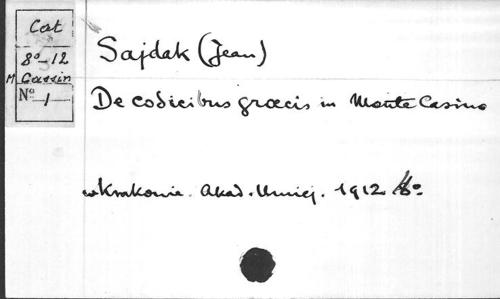 Cat
8º-12
M. Cassin
Nº 1
Sajdak (Jean)
De codicibus græcis in Monte Casino
w Krakowie. Akad. Umiej. 1912 8º